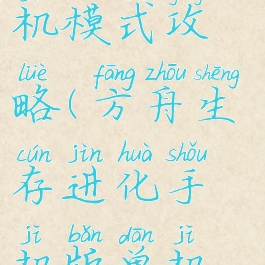 机模式攻
lüè fāng zhōu shēng
略(方舟生
cún jìn huà shǒu
存进化手
jī bǎn dān jī
机版单机